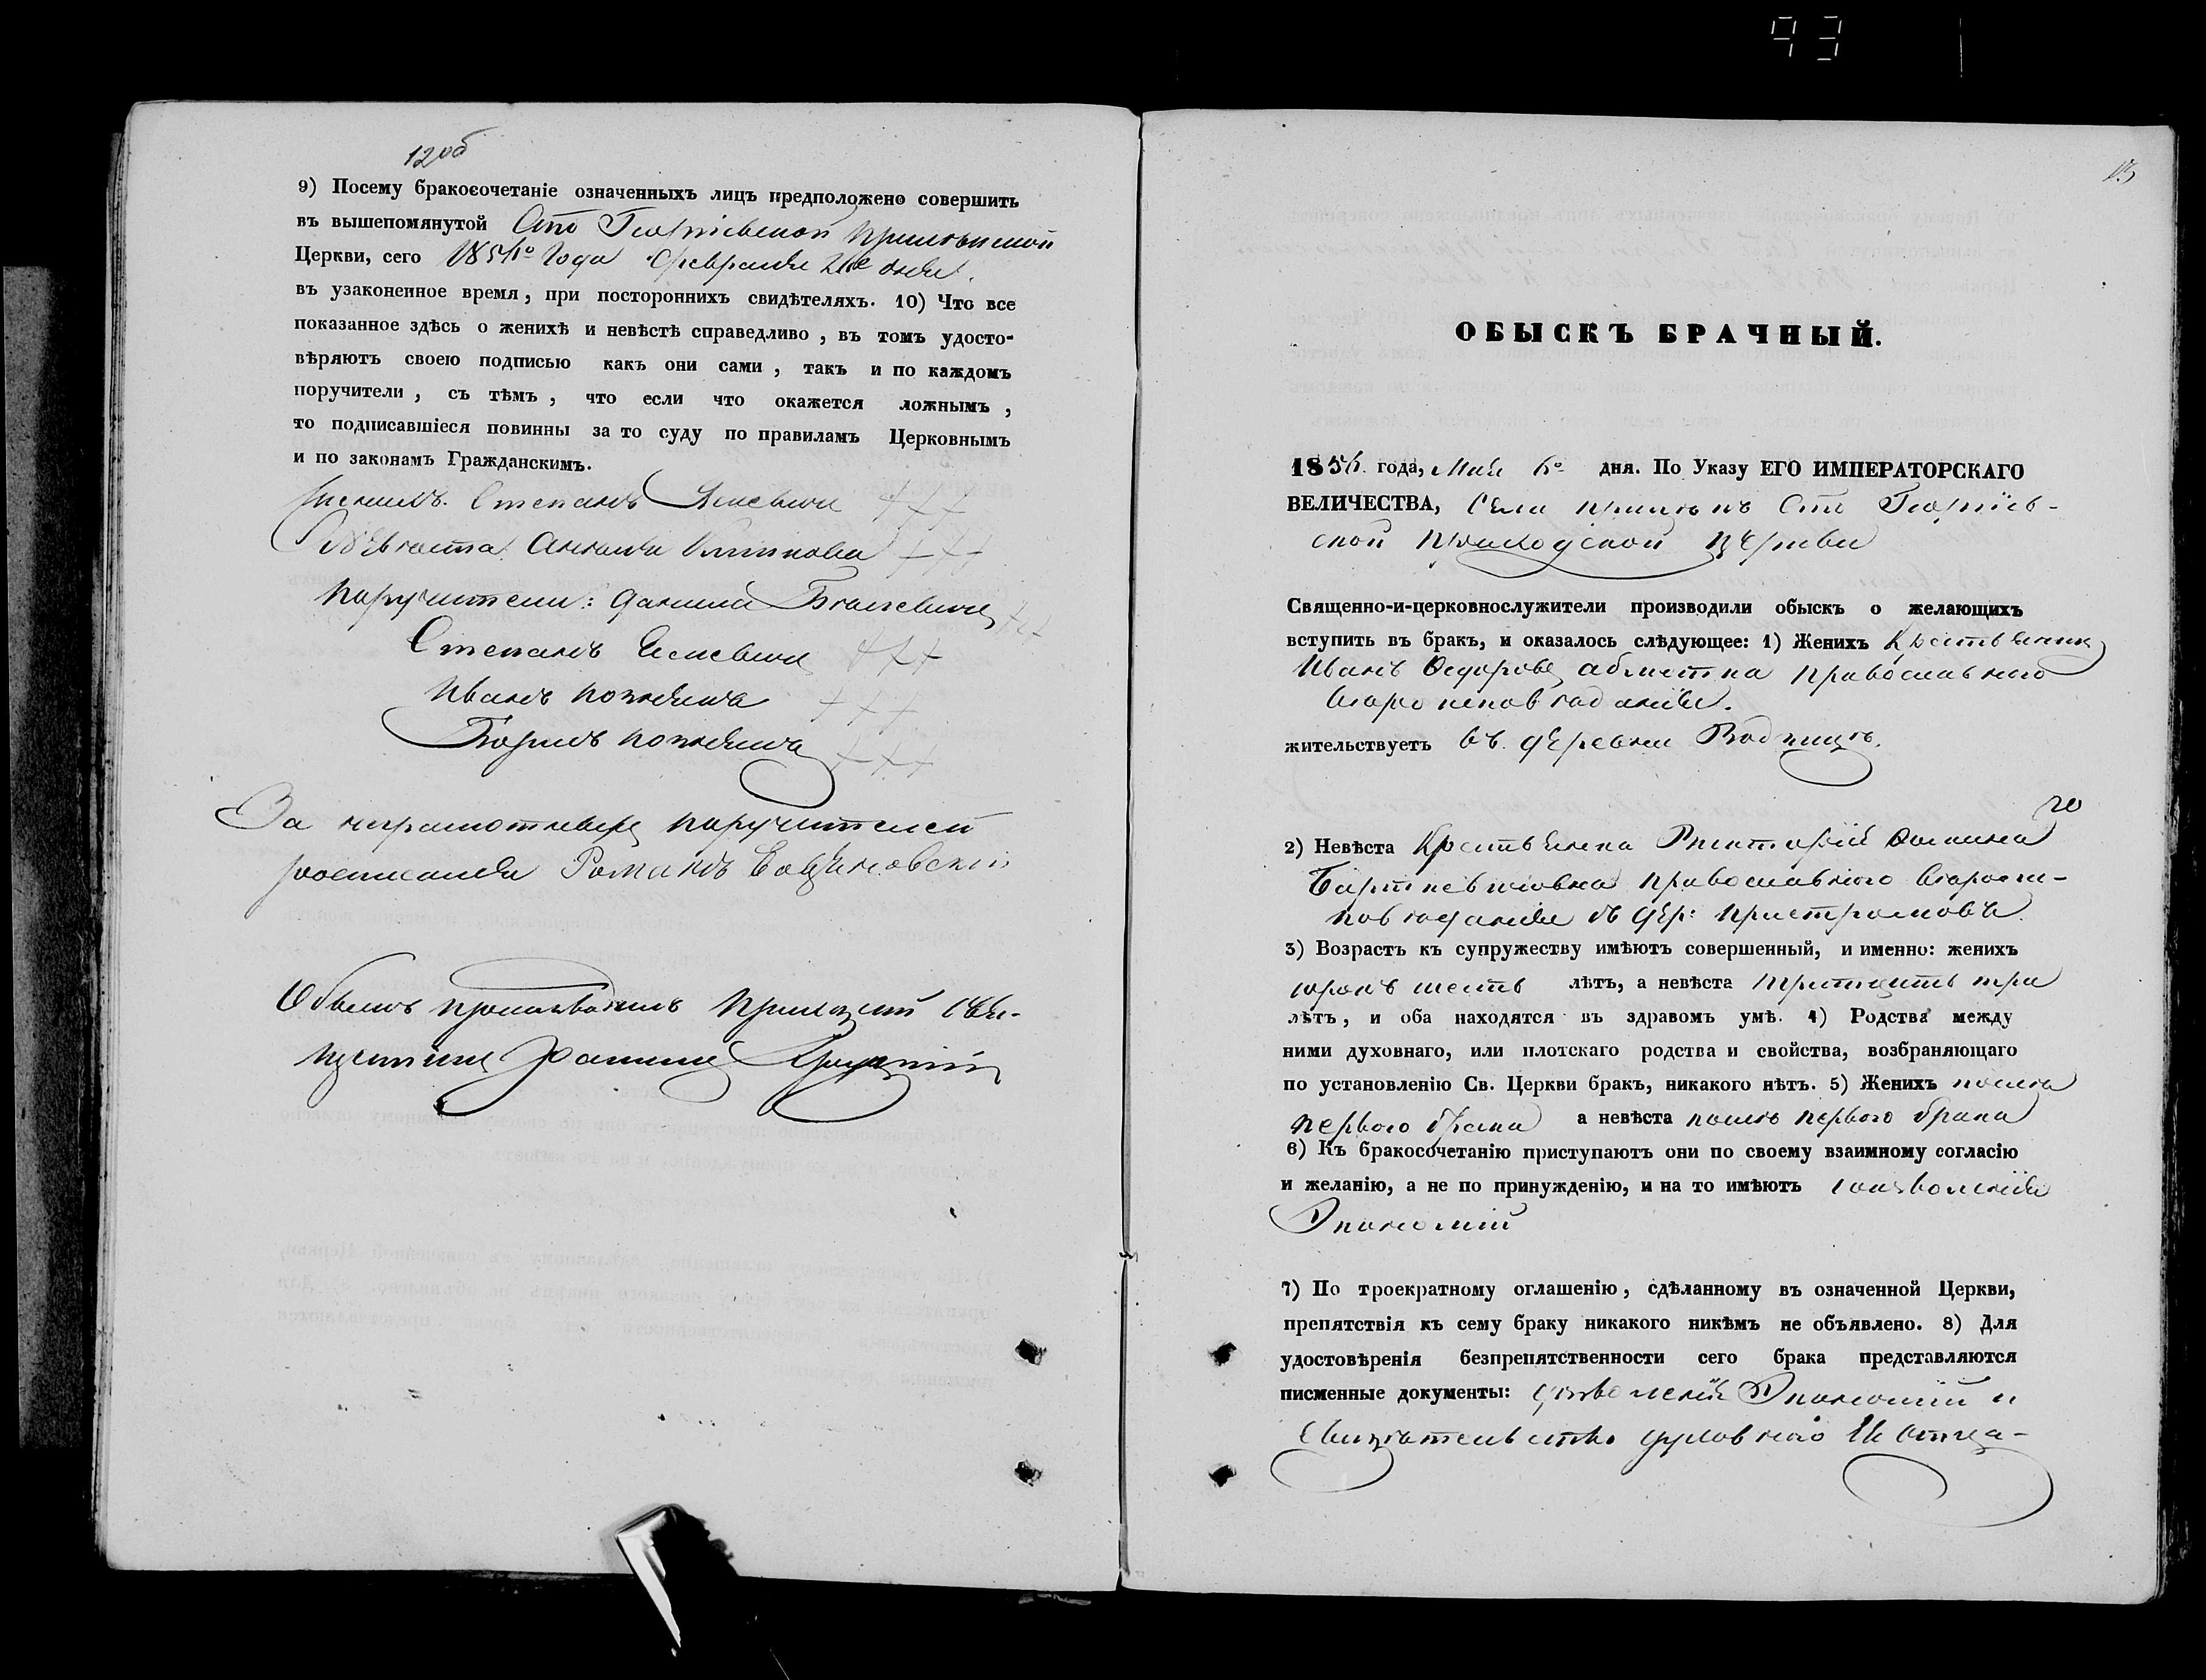 93
12 об
9) Посему бракосочетаніе означенныхъ лицъ предположено совершить
въ вышепомянутой Сто Георгіевской
Церкви, сего года Февраля дня.
въ узаконенное время, при постороннихъ свидѣтеляхъ. 10) Что все
показанное здѣсь о женихѣ и невѣстѣ справедливо, въ томъ удосто-
вѣряютъ своею подписью какъ они сами, такъ и по каждомъ
поручители, съ тѣмъ, что если что окажется ложнымъ,
то подписавшіеся повинны за то суду по правиламъ Церковнымъ
и по законамъ Гражданскимъ.
Женихъ Степанъ +++
Невѣста +++
Поручители: Данило +++
Степанъ +++
Иванъ +++
Борисъ +++
За неграмотныхъ поручителей
росписался Романъ
Обыскъ производилъ Приходскій Свя-
щенникъ
13
ОБЫСКЪ БРАЧНЫЙ.
185 года, Мая дня. По Указу ЕГО ИМПЕРАТОРСКАГО
ВЕЛИЧЕСТВА, Села Сто Георгіев-
ской приходской церкви
Священно-и-церковнослужители производили обыскъ о желающихъ
вступить въ бракъ, и оказалось слѣдующее: 1) Женихъ Крестьянинъ
Иванъ Федоровъ православного
вѣроисповѣданія.
жительствуетъ въ деревни
2) Невѣста Крестьянка
православного вѣроис-
повѣданія въ дер:
3) Возрастъ къ супружеству имѣютъ совершенный, и именно: женихъ
сорокъ шесть лѣтъ, а невѣста тритцать три
лѣтъ, и оба находятся въ здравомъ умѣ. 4) Родства между
ними духовнаго, или плотскаго родства и свойства, возбраняющаго
по установленію Св. Церкви бракъ, никакого нѣтъ. 5) Женихъ послѣ
первого брака а невѣста послѣ первого брака
6) Къ бракосочетанію приступаютъ они по своему взаимному согласію
и желанію, а не по принужденію, и на то имѣютъ
Экономіи
7) По троекратному оглашенію, сдѣланному въ означенной Церкви,
препятствія къ сему браку никакого никѣмъ не объявлено. 8) Для
удостовѣренія безпрепятственности сего брака представляются
писменные документы: дозволенія Экономіи и
Свидѣтельство духовного Ихъ отца-